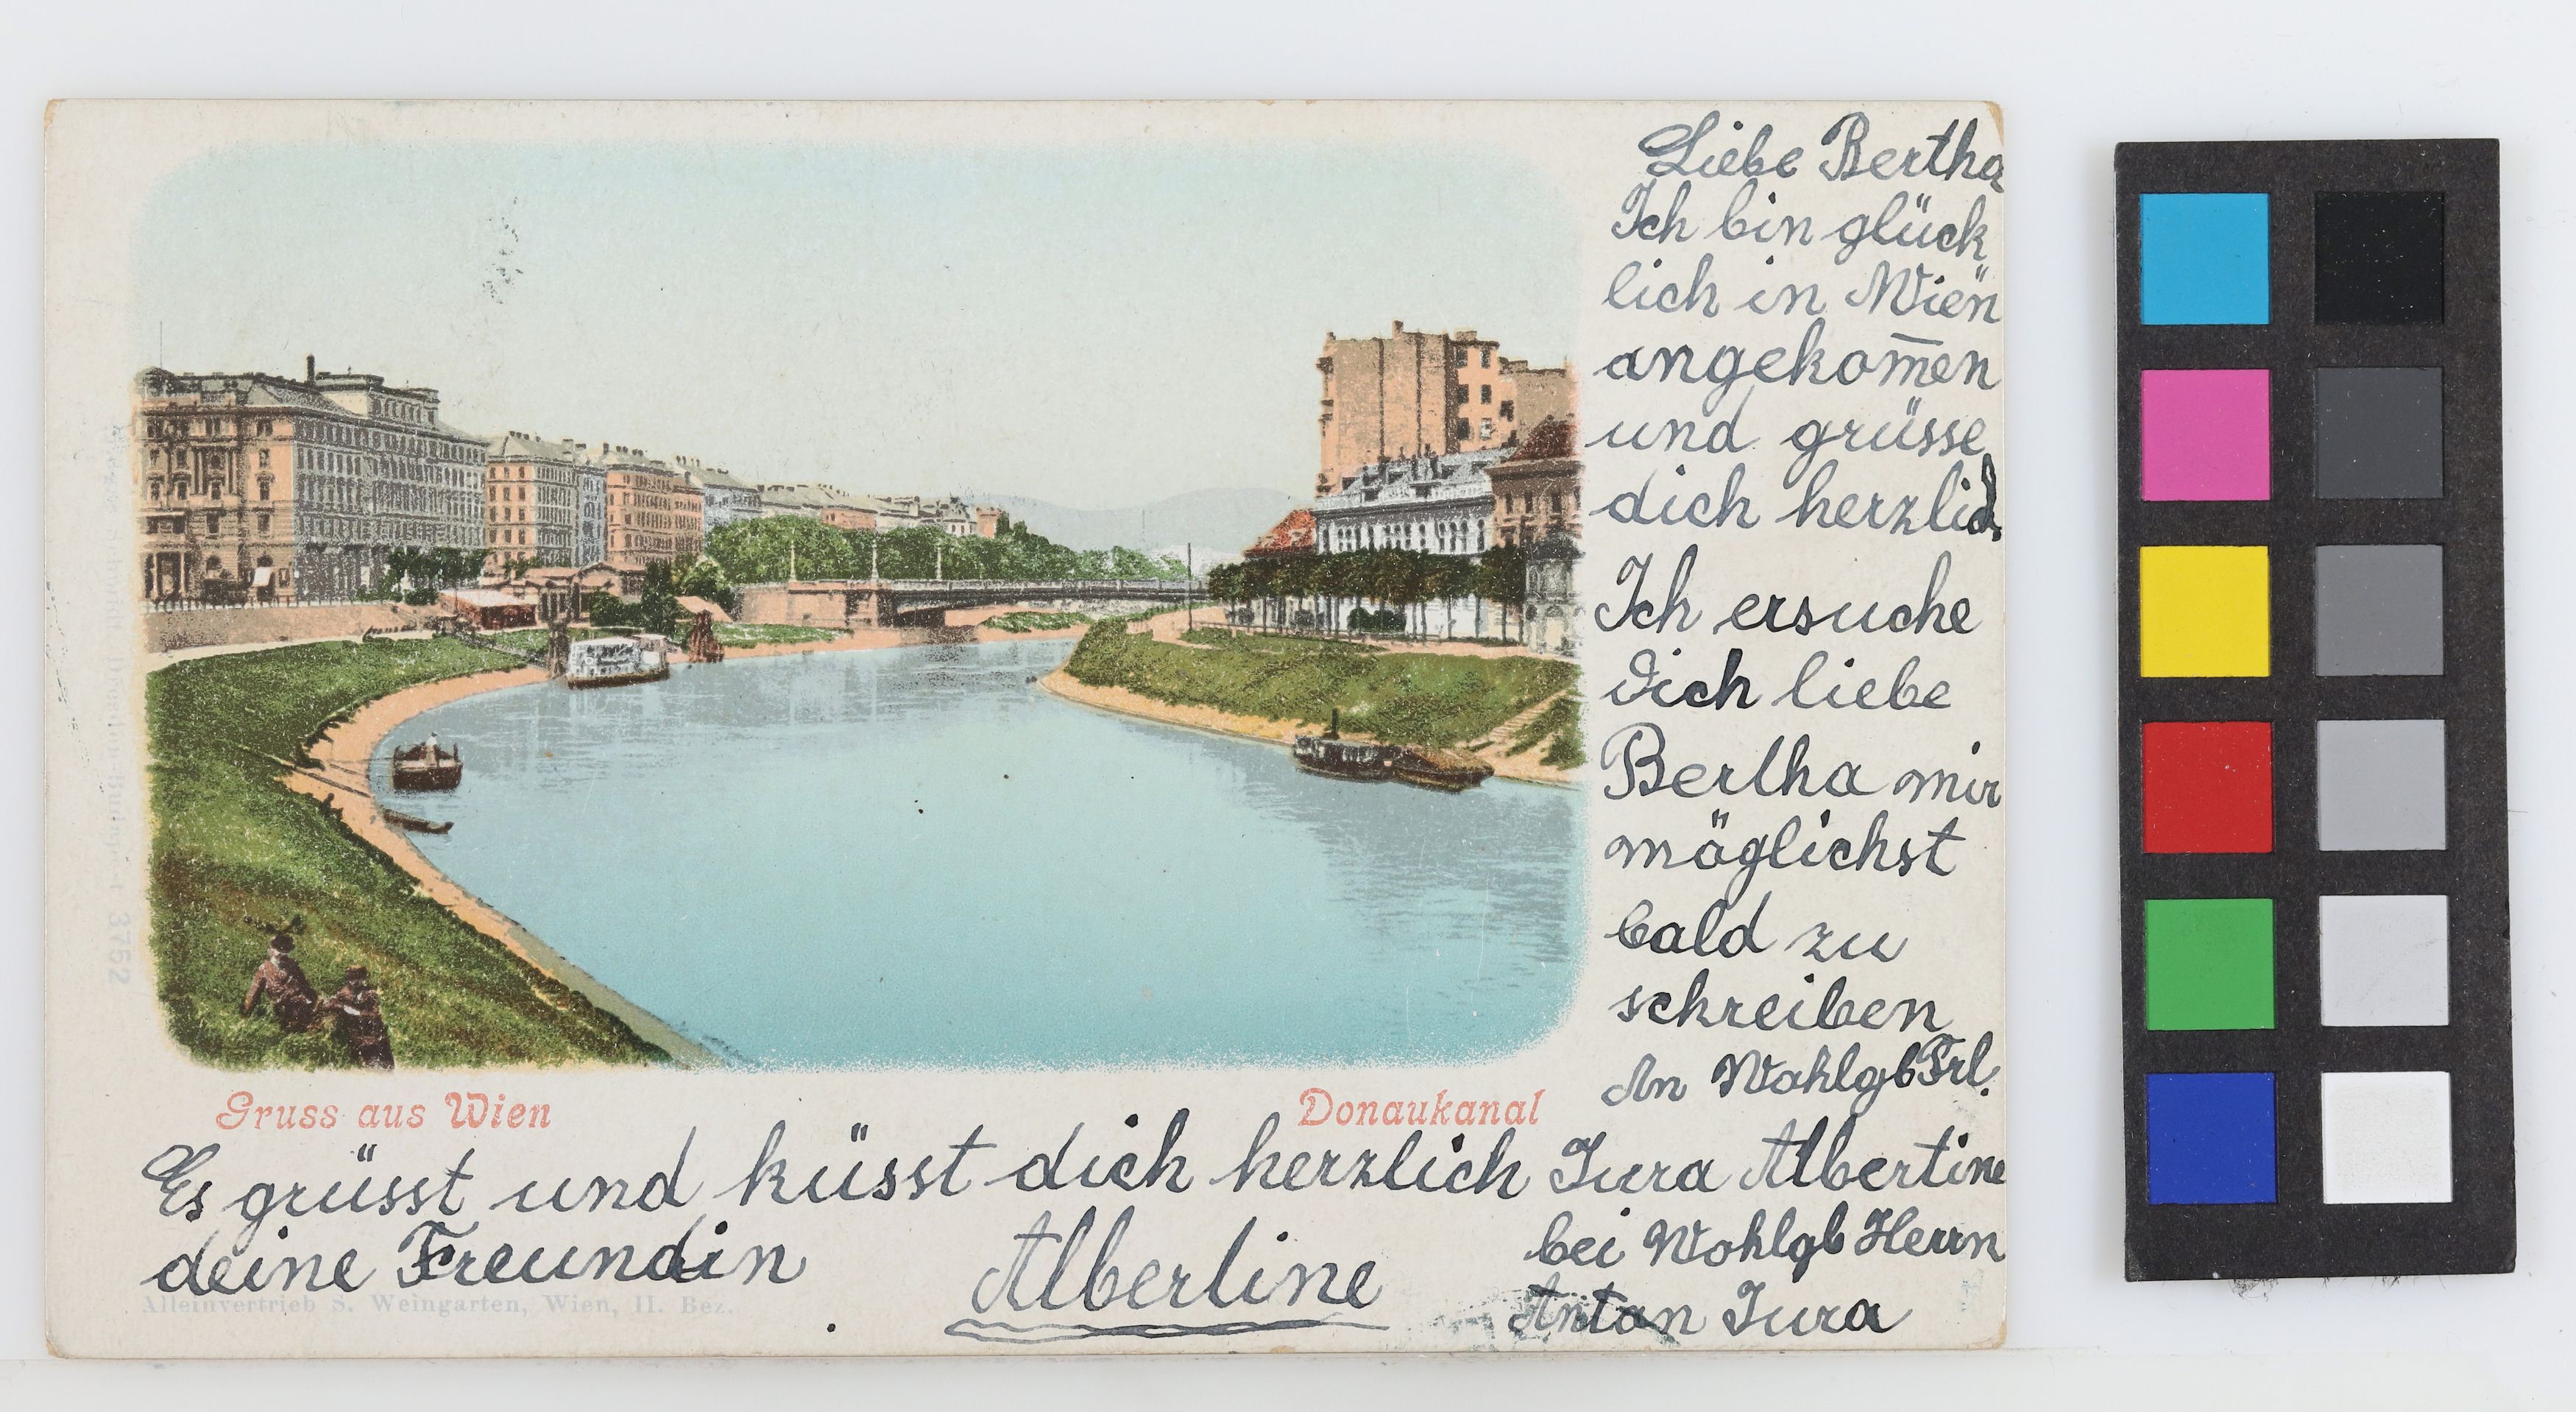 Liebe Bertha
Ich bin glück
lich in Wien
angekom̅en
und grüsse
dich herzlich
Ich ersuche
dich liebe
Bertha mir
möglichst
bald zu
schreiben
An Wohlgb Frl.
Jura Albertine
bei Wohlgb Herrn
Anton Jura
Gruss aus Wien
Donaukanal
Es grüsst und küsst dich herzlich
deine Freundin Albertine
Alleinvertrieb S. Weingarten, Wien, II. Bez.
3752